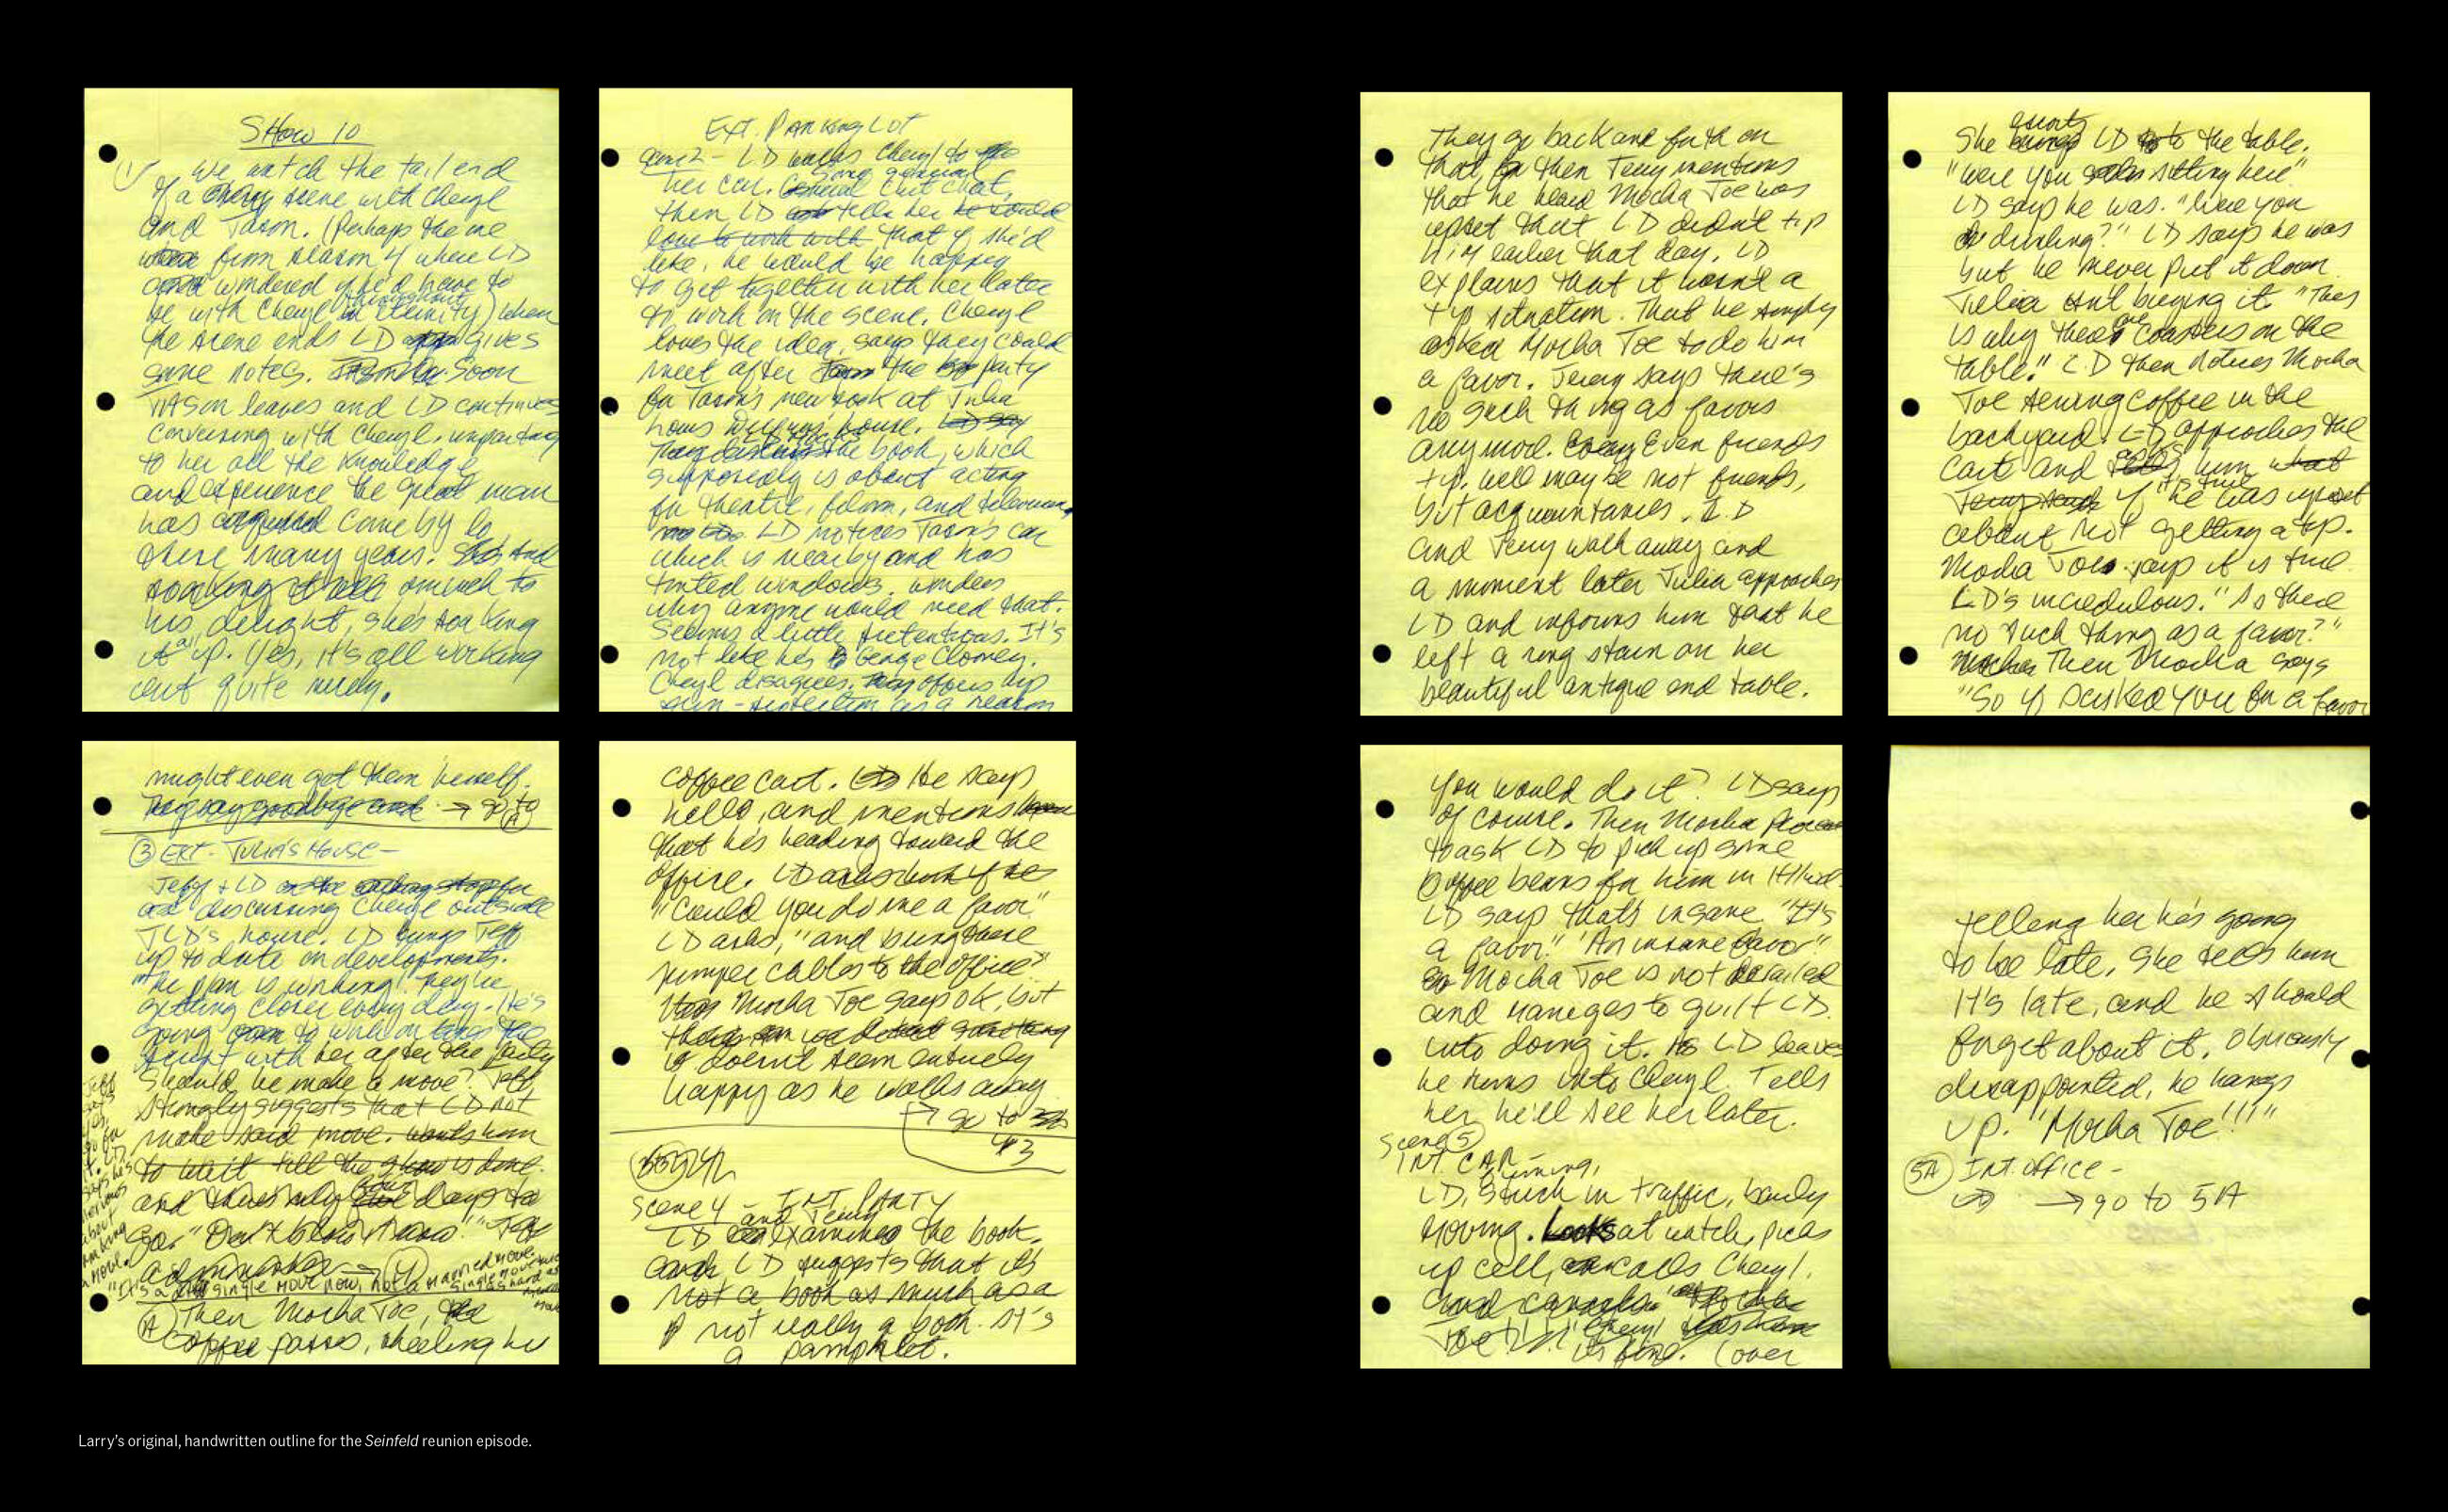 SHOW 10
1) We watch the tail end
of a Cheryl scene with Cheryl
and Jason. (Perhaps the one
from season 4 where LD
wondered if he'd have to
be with Cheryl throughout eternity) When
the scene ends LD gives
some notes. Soon
Jason leaves and LD continues
conversing with Cheryl, imparting
to her all the knowledge
and experience the great man
has come by lo
these many years. And
much to
his delight, she's soaking
it all up. Yes, it's all working
out quite nicely.
EXT. PARKING LOT
Scene 2 - LD walks Cheryl to
her car. Some general chit chat,
then LD tells her he would
love to work with that if she'd
like, he would be happy
to get together with her later
to work on the scene. Cheryl
loves the idea, says they could
meet after the party
for Jason's new book at Julia
Louis Dreyfus' house. LD say
the book, which
supposedly is about acting
for theatre, film, and television.
LD notices Jason's car
which is nearby and has
tinted windows. wonders
why anyone would need that.
Seems a little pretentious. It's
not like he's George Clooney.
Cheryl disagrees. offers up
sun-protection as a reason
might even get them herself.
They say goodbye and → go to
A
3 EXT. JULIA'S HOUSE -
Jeff + LD
are discussing Cheryl outside
JLD's house. LD brings Jeff
up to date on developments.
"The plan is working. They're
getting closer every day. He's
going to work on the
script with her after the party
Should he make a move? Jeff
strongly suggests that LD not
make said move. Wants him
to wait till the show is done.
and there's only four days to
go. "Don't blow it now." Jeff
→ 4
Jeff
says
yes,
go for
it. LD
says he's
nervous
about
making
a move.
"It's a single move now, not a married move
single move
A Then Mocha Joe, the
coffee passes, wheeling his
coffee cart. He says
hello, and mentions
that he's heading toward the
office. LD asks him if he's
"Could you do me a favor"
LD asks, "and bring these
jumper cables to the office"
Mocha Joe says ok, but
it doesn't seem entirely
happy as he walks away
→ go to
#3
Scene 4 - INT PARTY
LD and Jerry examines the book.
LD suggests that it's
not a book as much as a
it not really a book. It's
a pamphlet.
They go back and forth on
that, then Jerry mentions
that he heard Mocha Joe was
upset that LD didn't tip
him earlier that day. LD
explains that it wasn't a
tip situation. That he simply
asked Mocha Joe to do him
a favor. Jerry says there's
no such thing as favors
anymore. Even friends
tip. well maybe not friends,
but acquaintances. LD
and Jerry walk away and
a moment later Julia approaches
LD and informs him that he
left a ring stain on her
beautiful antique end table.
She escorts brings LD to the table.
"Were you sitting here"
LD says he was. "Were you
drinking?" LD says he was
but he never put it down.
Julia isn't buying it. "This
is why there are coasters on the
table." LD then notices Mocha
Joe serving coffee in the
backyard. LD approaches the
cart and asks him what
Jerry said if it's true he was upset
about not getting a tip.
Mocha Joe says it is true.
LD's incredulous. "So there
no such thing as a favor?"
Mocha Then Mocha says
"So if I asked you for a favor
you would do it? LD says
of course. Then Mocha
to ask LD to pick up some
coffee beans for him in
LD says that's insane. "It's
a favor." "An insane favor"
Mocha Joe is not derailed
and manages to guilt LD
into doing it. As LD leaves
he runs into Cheryl. Tells
her he'll see her later.
Scene 5
INT. CAR -
LD, fuming, stuck in traffic, barely
moving. Looks at watch, picks
up cell, calls Cheryl.
(over
telling her he's going
to be late. She tells him
It's late, and he should
forget about it. Obviously
disappointed, he hangs
up. "Mocha Joe!!!"
5A Int. office -
→ go to 5A
Larry's original, handwritten outline for the Seinfeld reunion episode.